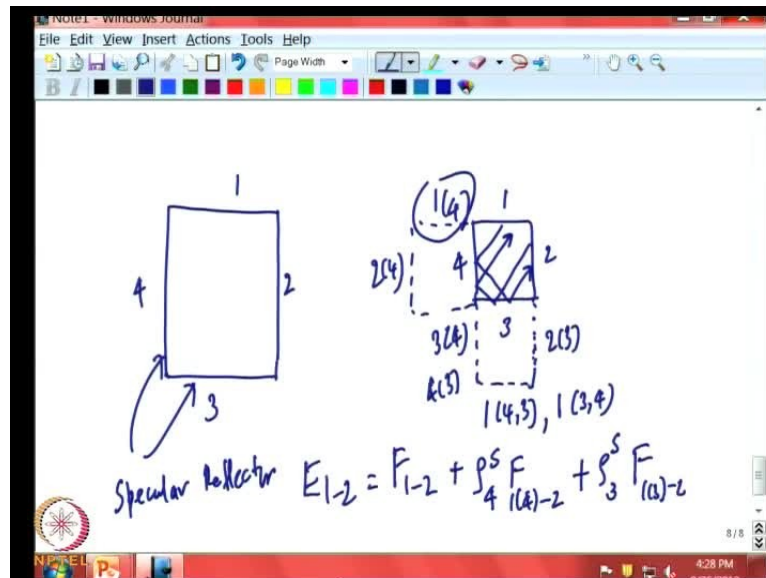 Note1 - Windows Journal
File Edit View Insert Actions Tools Help
Page Width
B I
1
4 2
3
Specular Reflector
1(4) 1
2(4) 4 2
3(4) 3 2(3)
4(3)
1(4,3), 1(3,4)
E1-2 = F1-2 + ρ4^s F1(4)-2 + ρ3^s F1(3)-2
8/8
NPTEL
4:28 PM